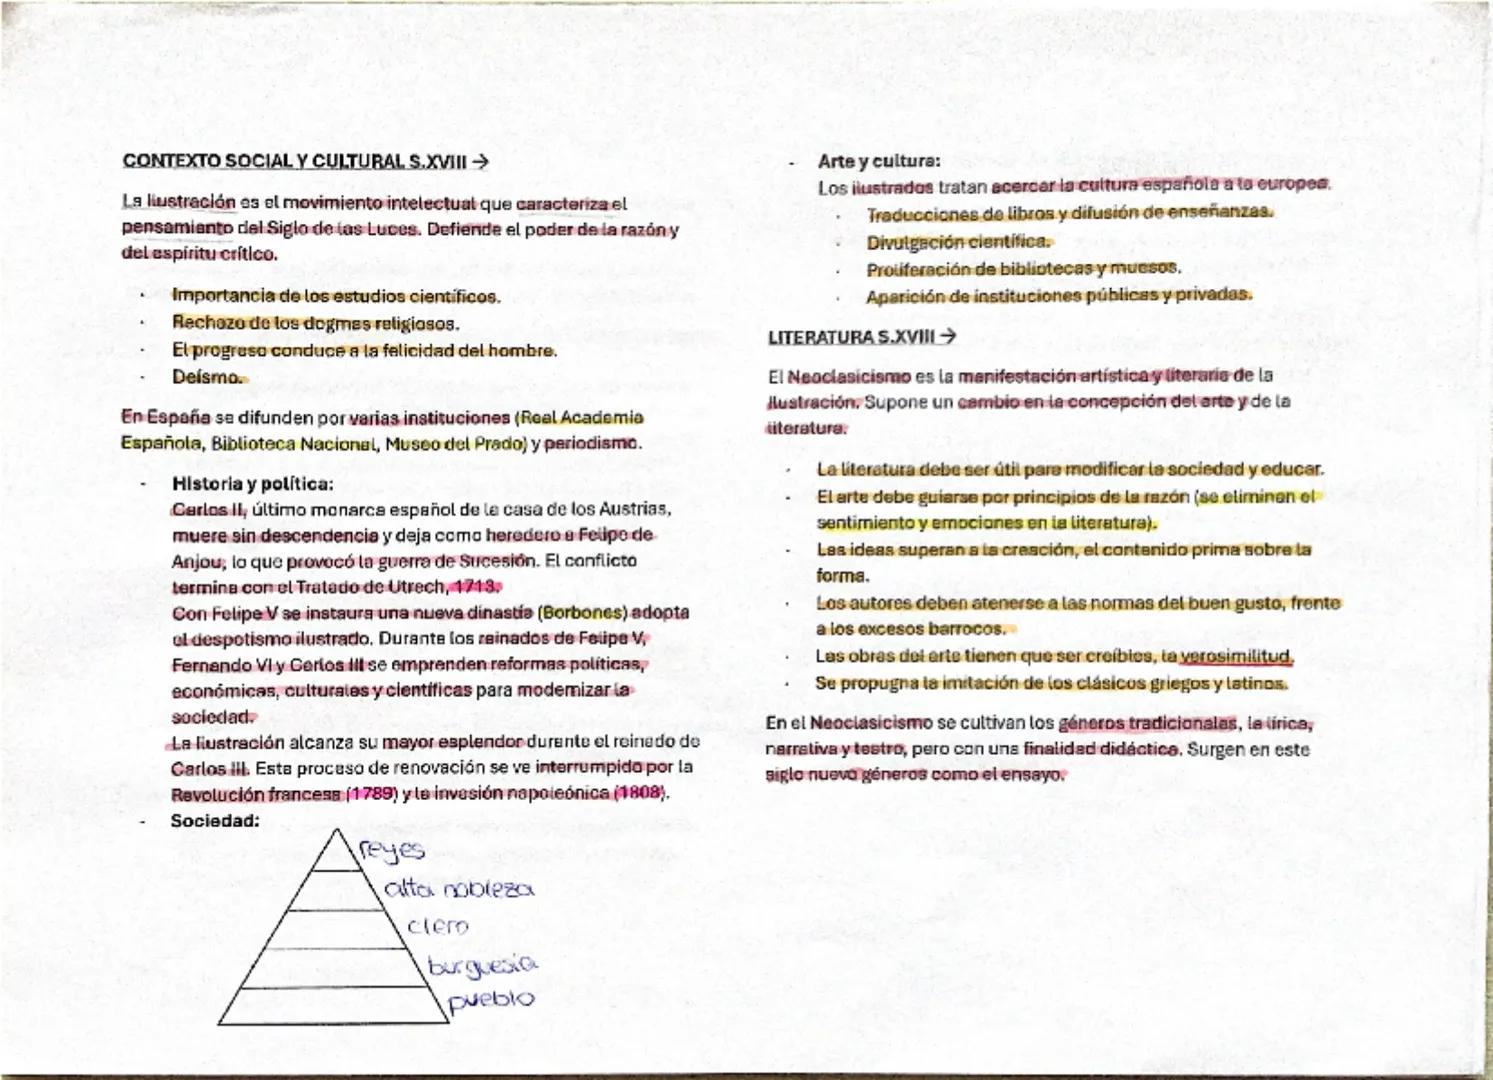 CONTEXTO SOCIAL Y CULTURAL S.XVIII →
La Ilustración es el movimiento intelectual que caracteriza el
pensamiento del Siglo de las Luces. Defiende el poder de la razón y
del espíritu crítico.
· Importancia de los estudios científicos.
· Rechazo de los dogmas religiosos.
· El progreso conduce a la felicidad del hombre.
· Deísmo.
En España se difunden por varias instituciones (Real Academia
Española, Biblioteca Nacional, Museo del Prado) y periodismo.
- Historia y política:
Carlos II, último monarca español de la casa de los Austrias,
muere sin descendencia y deja como heredero a Felipe de
Anjou, lo que provocó la guerra de Sucesión. El conflicto
termina con el Tratado de Utrech, 1713.
Con Felipe V se instaura una nueva dinastía (Borbones) adopta
el despotismo ilustrado. Durante los reinados de Felipe V,
Fernando VI y Carlos III se emprenden reformas políticas,
económicas, culturales y científicas para modernizar la
sociedad.
La Ilustración alcanza su mayor esplendor durante el reinado de
Carlos III. Este proceso de renovación se ve interrumpido por la
Revolución francesa (1789) y la invasión napoleónica (1808).
- Sociedad:
reyes
alta nobleza
clero
burguesía
pueblo
- Arte y cultura:
Los ilustrados tratan acercar la cultura española a la europea.
· Traducciones de libros y difusión de enseñanzas.
· Divulgación científica.
· Proliferación de bibliotecas y museos.
· Aparición de instituciones públicas y privadas.
LITERATURA S.XVIII →
El Neoclasicismo es la manifestación artística y literaria de la
Ilustración. Supone un cambio en la concepción del arte y de la
literatura.
· La literatura debe ser útil para modificar la sociedad y educar.
· El arte debe guiarse por principios de la razón (se eliminan el
sentimiento y emociones en la literatura).
· Las ideas superan a la creación, el contenido prima sobre la
forma.
· Los autores deben atenerse a las normas del buen gusto, frente
a los excesos barrocos.
· Las obras del arte tienen que ser creíbles, la verosimilitud.
· Se propugna la imitación de los clásicos griegos y latinos.
En el Neoclasicismo se cultivan los géneros tradicionales, la lírica,
narrativa y teatro, pero con una finalidad didáctica. Surgen en este
siglo nuevo géneros como el ensayo.